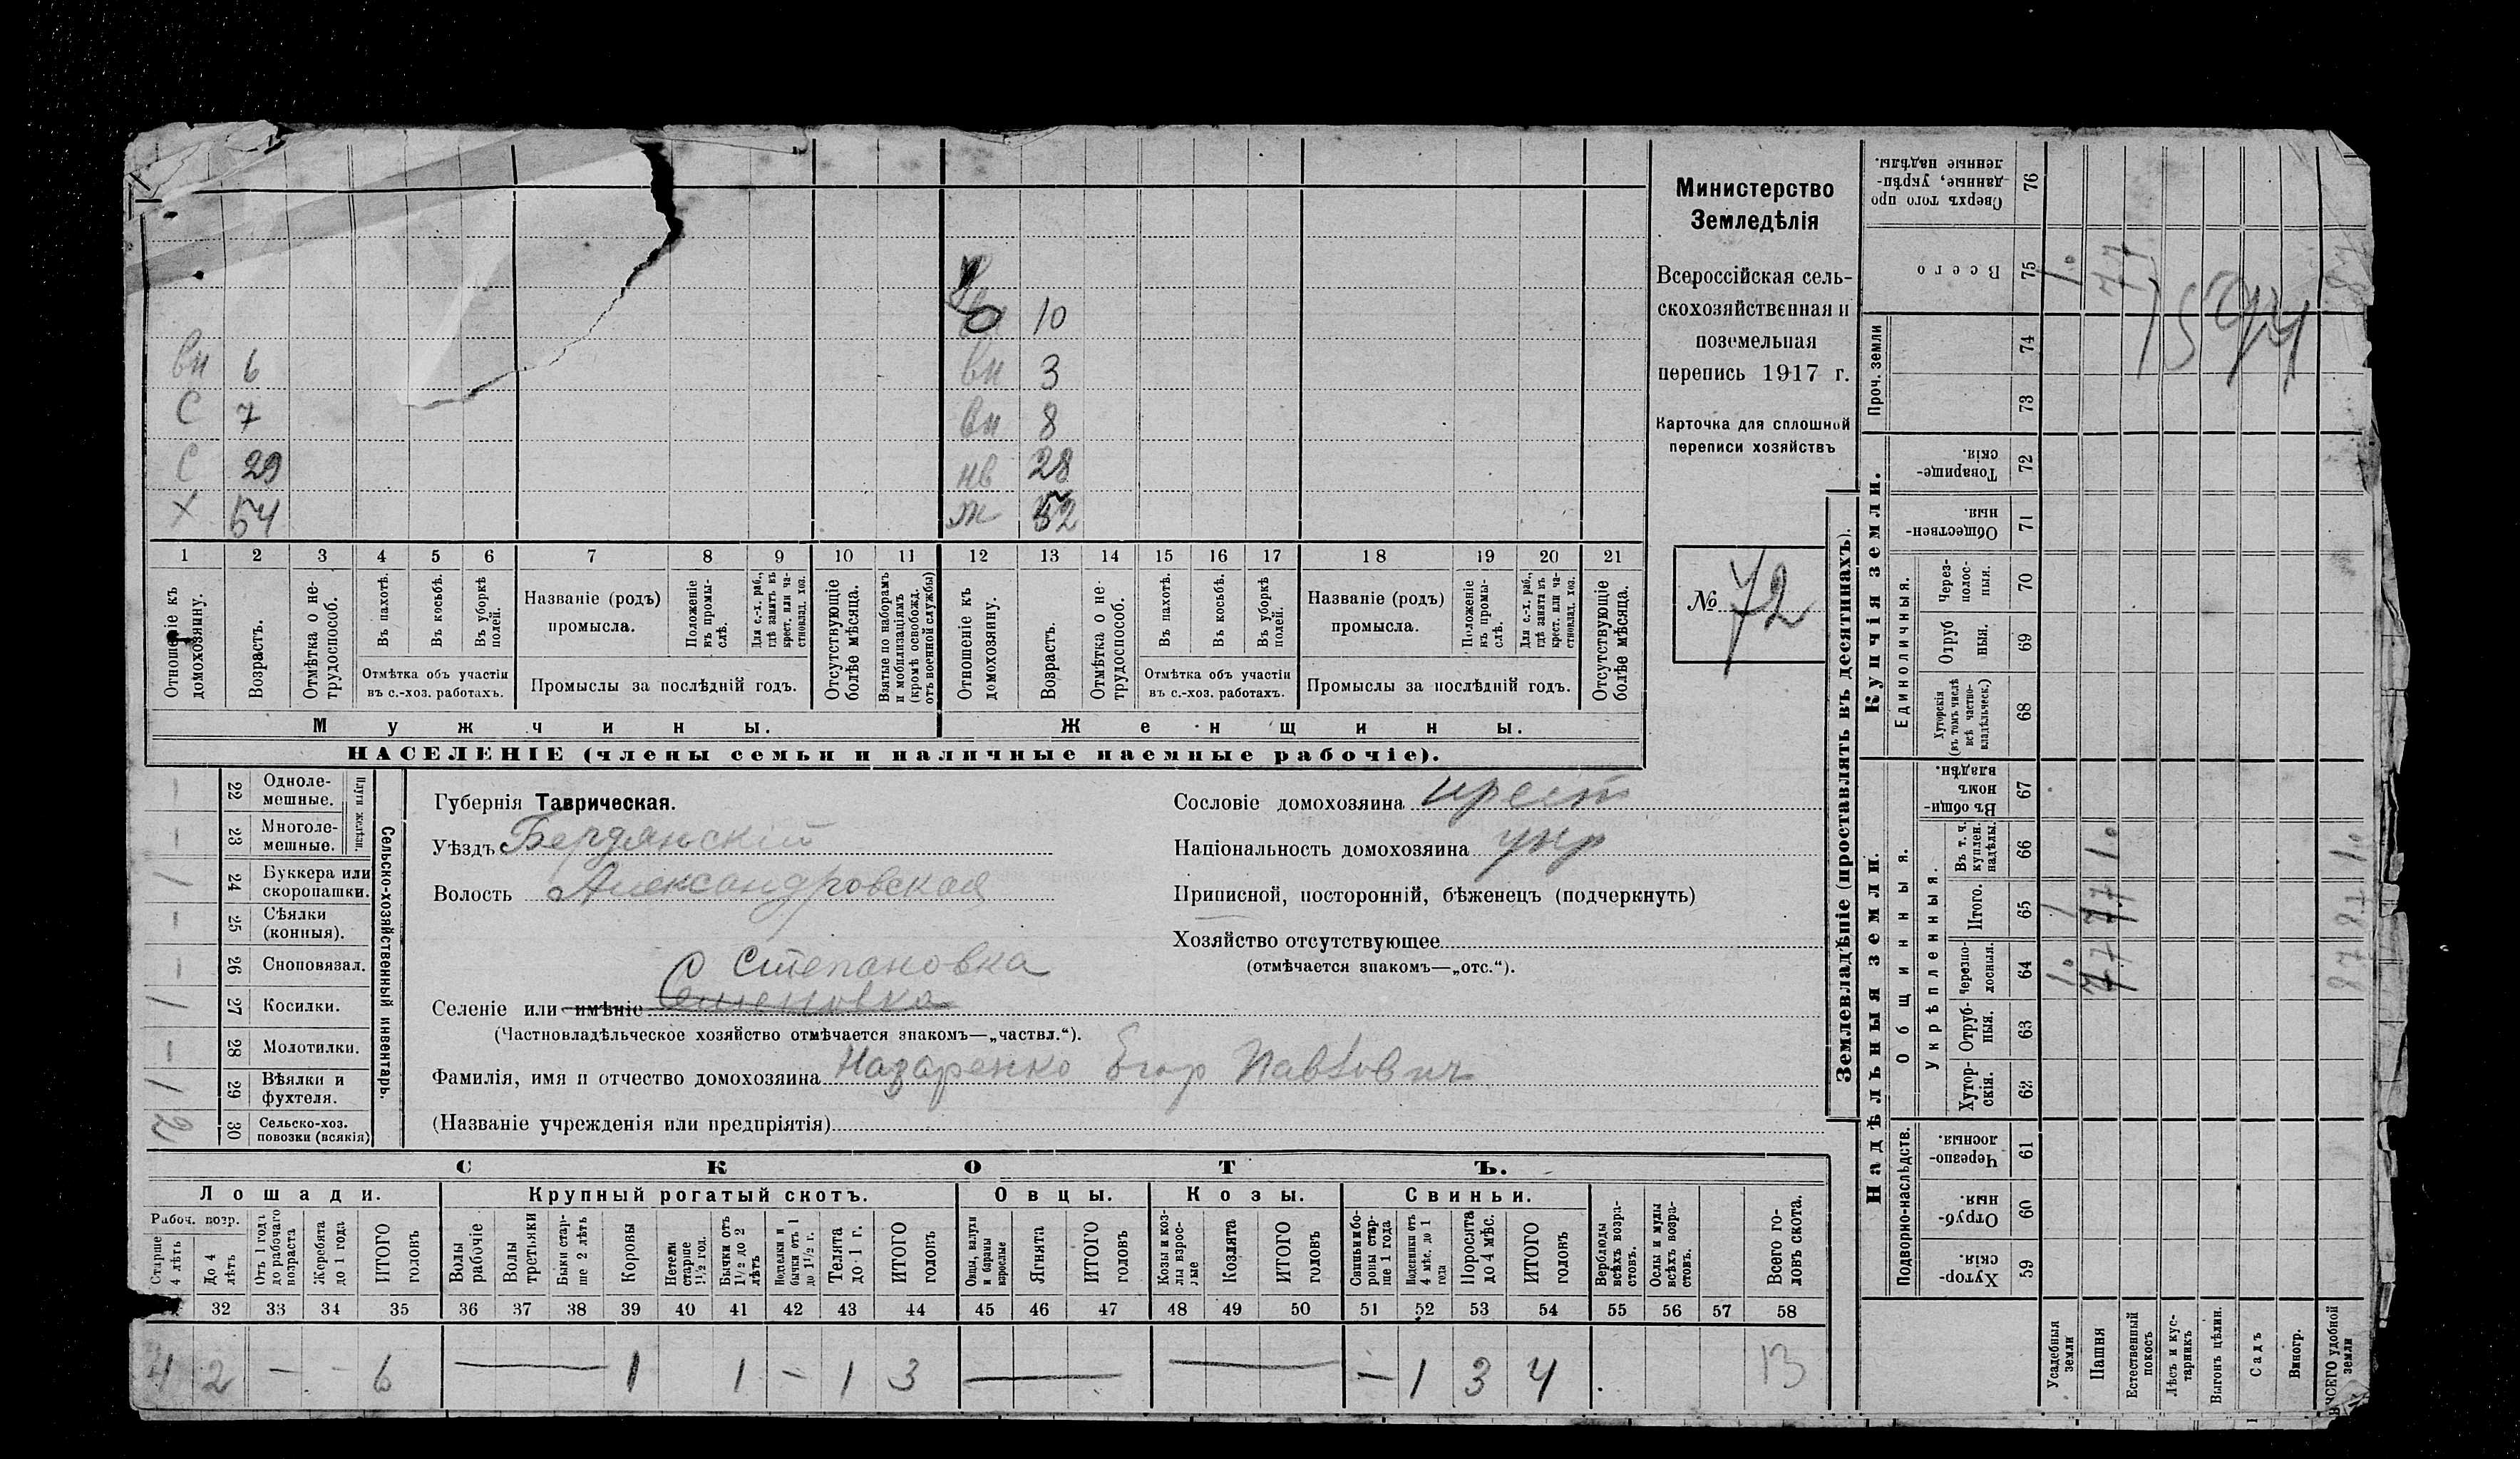 Министерство
Земледѣлія
Всероссійская сель-
скохозяйственная и
поземельная
перепись 1917 г.
Карточка для сплошной
переписи хозяйствъ
№ 72
10
вн 6 вн 3
С 7 вн 8
С 29 нв 28
Х 54 ж 52
1 2 3 4 5 6 7 8 9 10 11 12 13 14 15 16 17 18 19 20 21
Отношеніе къ домохозяину.
Возрастъ.
Отмѣтка о не-трудоспособ.
Въ пахотѣ.
Въ косьбѣ.
Въ уборкѣ полей.
Отмѣтка объ участіи
въ с.-хоз. работахъ.
Названіе (родъ)
промысла.
Положеніе въ промы-слѣ.
Для с.-х. раб., гдѣ занятъ въ крест. или ча-стновлад. хоз.
Промыслы за послѣдній годъ.
Отсутствующіе болѣе мѣсяца.
Взятые по наборамъ и мобилизаціямъ (кромѣ освобожд. отъ военной службы)
Отношеніе къ домохозяину.
Возрастъ.
Отмѣтка о не-трудоспособ.
Въ пахотѣ.
Въ косьбѣ.
Въ уборкѣ полей.
Отмѣтка объ участіи
въ с.-хоз. работахъ.
Названіе (родъ)
промысла.
Положеніе въ промы-слѣ.
Для с.-х. раб., гдѣ занята въ крест. или ча-стновлад. хоз.
Промыслы за послѣдній годъ.
Отсутствующіе болѣе мѣсяца.
Мужчины. Женщины.
НАСЕЛЕНІЕ (члены семьи и наличные наемные рабочіе).
Сельско-хозяйственный инвентарь.
Плуги желѣзн.
— 22 Однолемешные.
— 23 Многолемешные.
1 24 Буккера или скоропашки.
— 25 Сѣялки (конныя).
— 26 Сноповязал.
1 27 Косилки.
— 28 Молотилки.
1 29 Вѣялки и фухтеля.
2 30 Сельско-хоз. повозки (всякія)
Губернія Таврическая.
Уѣздъ Бердянскій
Волость Александровская
Степановка
Селеніе или имѣніе Семеновка
(Частновладѣльческое хозяйство отмѣчается знакомъ—„частвл.“).
Фамилія, имя и отчество домохозяина Назаренко Егор Павлович
(Названіе учрежденія или предпріятія)
Сословіе домохозяина крест
Національность домохозяина укр
Приписной, посторонній, бѣженецъ (подчеркнуть)
Хозяйство отсутствующее
(отмѣчается знакомъ—„отс.“).
СКОТЪ.
Лошади. Крупный рогатый скотъ. Овцы. Козы. Свиньи.
Рабоч. возр.
Старше 4 лѣтъ
До 4 лѣтъ
Отъ 1 годъ до рабочаго возраста
Жеребята до 1 года
ИТОГО головъ
Волы рабочіе
Волы третьяки
Быки стар-ше 2 лѣтъ
Коровы
Нетели старше 1½ год.
Бычки отъ 1½ до 2 лѣтъ
Телята до 1 г.
ИТОГО головъ
Овцы, валухи и бараны взрослые
Ягнята
ИТОГО головъ
Козы и коз-лы взрос-лые
Козлята
ИТОГО головъ
Свиньи и бо-ровы стар-ше 1 года
Подсвинки отъ 4 мѣс. до 1 года
Поросята до 4 мѣс.
ИТОГО головъ
Верблюды всѣхъ возра-стовъ.
Ослы и мулы всѣхъ возра-стовъ.
Всего го-ловъ скота.
32 33 34 35 36 37 38 39 40 41 42 43 44 45 46 47 48 49 50 51 52 53 54 55 56 57 58
4 2 — - 6 — 1 1 - 1 3 — — — 1 3 4 13
Землевладѣніе (проставлять въ десятинахъ).
Купчія земли.
Надѣльныя земли.
Сверхъ того про-данные, укрѣп-ленные надѣлы. 76
Всего 75
Проч. земли 74 73
Товарище-скія. 72
Обществен-ныя. 71
Единоличныя.
Через-полос-ныя. 70
Отруб-ныя. 69
Хуторскія (въ томъ числѣ всѣ частно-владѣльческ.) 68
Въ общи-номъ владѣн. 67
Общинныя.
Укрѣпленныя.
Въ т. ч. куплен. надѣлы. 66
Итого. 65
Черезпо-лосныя. 64
Отруб-ныя. 63
Хутор-скія. 62
Подворно-наслѣдств.
Черезпо-лосныя. 61
Отруб-ныя. 60
Хутор-скія. 59
Усадебныя земли
Пашня
Естественный покосъ
Лѣсъ и кус-тарникъ
Выгонъ цѣлин.
Садъ
Виногр.
ВСЕГО удобной земли